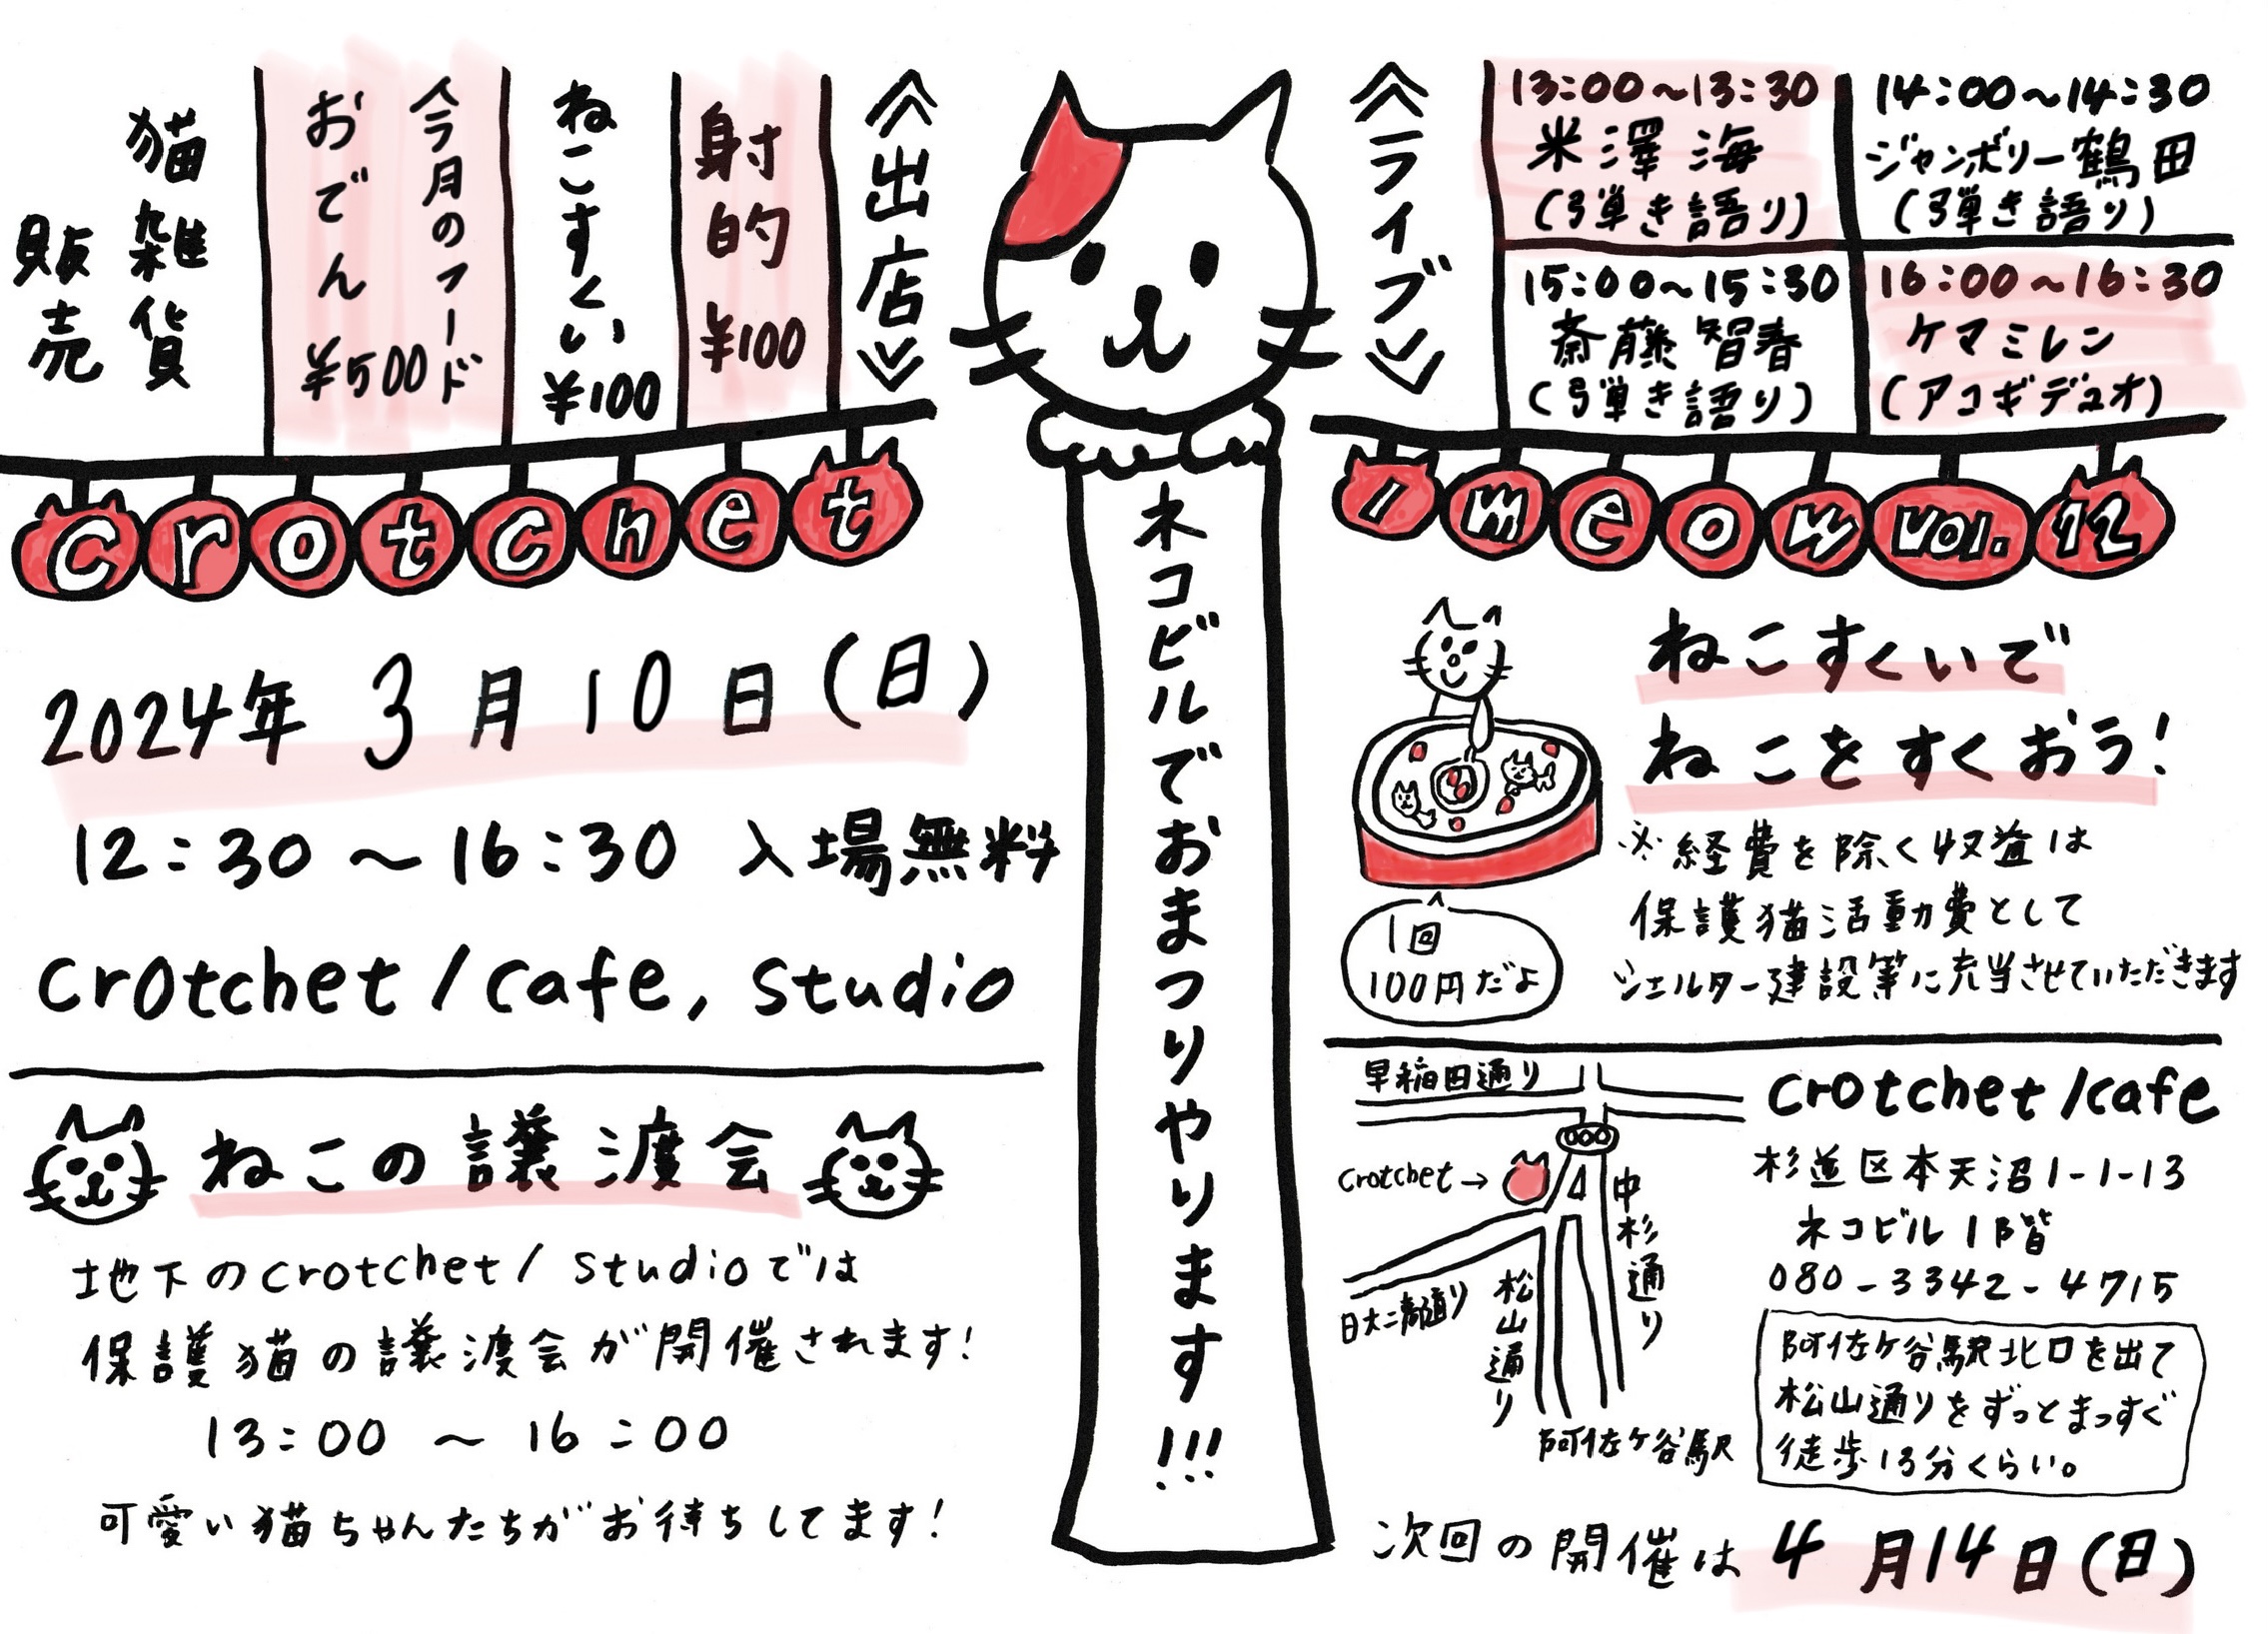 《出店》
射的 ¥100
ねこすくい ¥100
今月のフード
おでん ¥500
猫雑貨
販売
《ライブ》
13:00～13:30
米澤海
(弾き語り)
14:00～14:30
ジャンボリー鶴田
(弾き語り)
15:00～15:30
斎藤智春
(弾き語り)
16:00～16:30
ケマミレン
(アコギデュオ)
crotchet
/meow vol.12
ネコビルでおまつりやります!!!
2024年 3月10日(日)
12:30～16:30 入場無料
crotchet/cafe, studio
ねこの譲渡会
地下のcrotchet/studioでは
保護猫の譲渡会が開催されます!
13:00～16:00
可愛い猫ちゃんたちがお待ちしてます!
ねこすくいで
ねこをすくおう!
※経費を除く収益は
保護猫活動費として
シェルター建設等に充当させていただきます
1回
100円だよ
早稲田通り
crotchet→
中杉通り
松山通り
日大二高通り
阿佐ケ谷駅
crotchet/cafe
杉並区本天沼1-1-13
ネコビル1階
080-3342-4715
阿佐ケ谷駅北口を出て
松山通りをずっとまっすぐ
徒歩13分くらい。
次回の開催は4月14日(日)